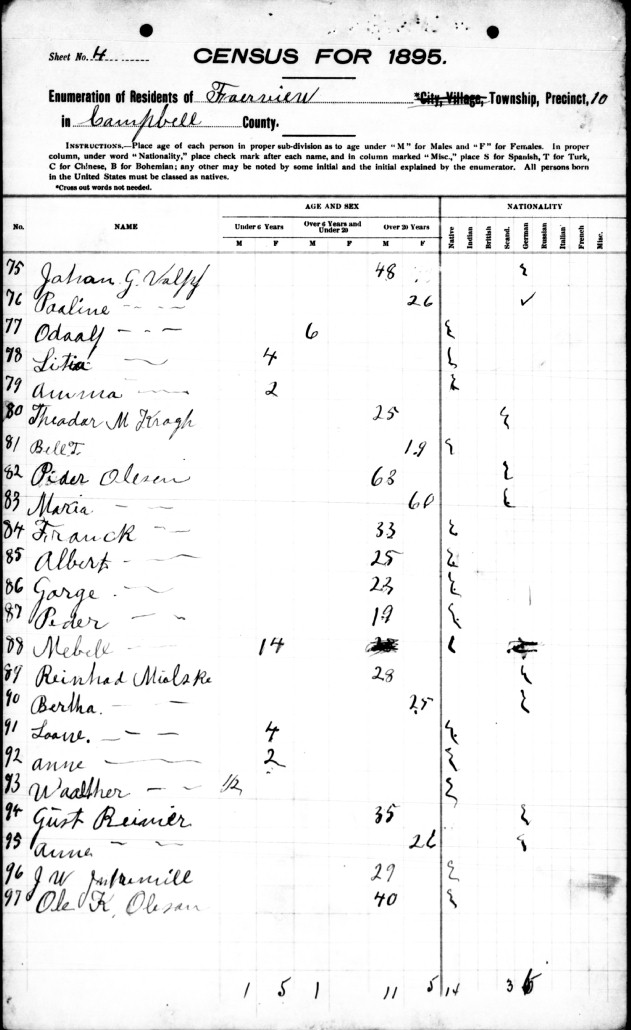 Sheet No. 4
CENSUS FOR 1895.
Enumeration of Residents of Faerview *City, Village, Township, Precinct, 10
in Campbell County.
INSTRUCTIONS.—Place age of each person in proper sub-division as to age under "M" for Males and "F" for Females. In proper
column, under word "Nationality," place check mark after each name, and in column marked "Misc.," place S for Spanish, T for Turk,
C for Chinese, B for Bohemian; any other may be noted by some initial and the initial explained by the enumerator. All persons born
in the United States must be classed as natives.
*Cross out words not needed.
AGE AND SEX NATIONALITY
No. NAME Under 6 Years Over 6 Years and Under 20 Over 20 Years Native Indian British Scand. German Russian Italian French Misc.
M F M F M F
75 Johan G. Valpy 48
76 Pauline 26 ✓
77 Odaalf 6
78 Litia 4
79 Amma 2
80 Theodar M Kragh 25
81 Bell T. 19
82 Peder Olesen 63
83 Maria 60
84 Franck 33
85 Albert 25
86 Gorge 23
87 Peder 19
88 Mebell 14
89 Reinhad Mialske 28
90 Bertha. 25
91 Loane. 4
92 anne 2
93 Waalther 1/2
94 Gust Reimer 35
95 anne 26
96 J W 29
97 Ole K. Oleson 40
1 5 1 11 5 14 3 6